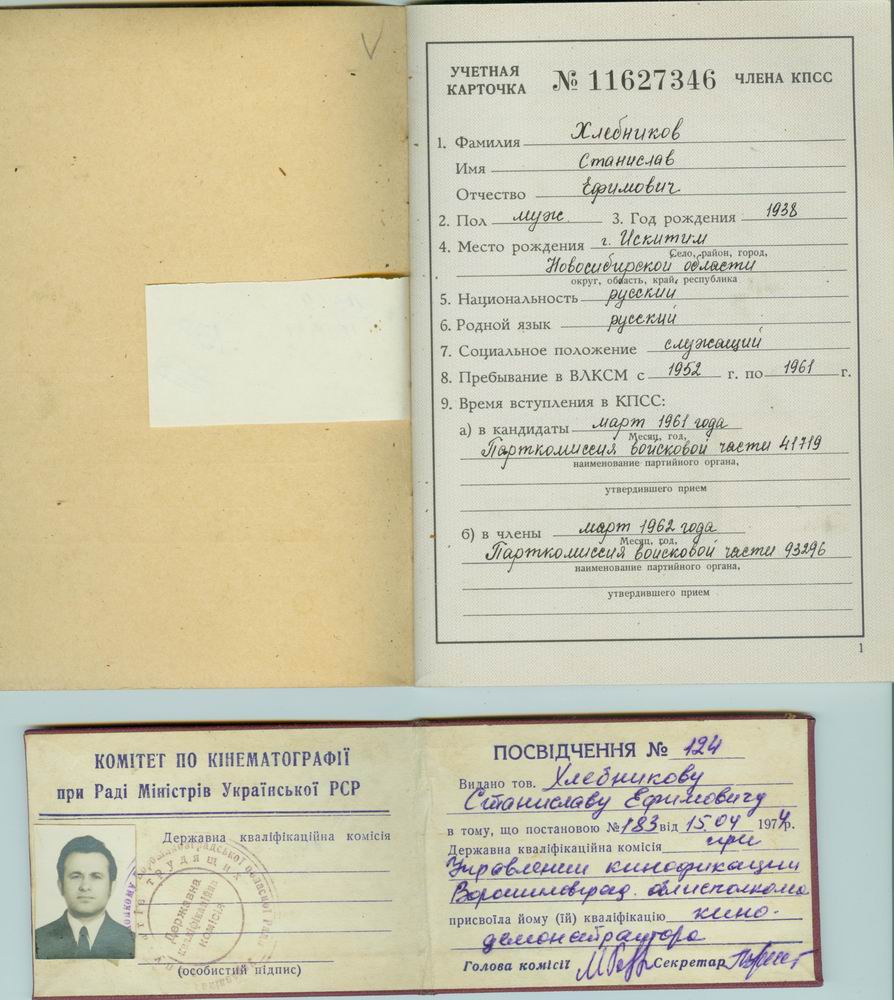 УЧЕТНАЯ КАРТОЧКА № 11627346 ЧЛЕНА КПСС
1. Фамилия Хлебников
Имя Станислав
Отчество Ефимович
2. Пол муж. 3. Год рождения 1938
4. Место рождения г. Искитим
Село, район, город,
Новосибирской области
округ, область, край, республика
5. Национальность русский
6. Родной язык русский
7. Социальное положение служащий
8. Пребывание в ВЛКСМ с 1952 г. по 1961 г.
9. Время вступления в КПСС:
а) в кандидаты март 1961 года
Месяц, год,
Парткомиссия войсковой части 41719
наименование партийного органа,
утвердившего прием
б) в члены март 1962 года
Месяц, год,
Парткомиссия войсковой части 93296
наименование партийного органа,
утвердившего прием
1
КОМІТЕТ ПО КІНЕМАТОГРАФІЇ
при Раді Міністрів Української РСР
Державна кваліфікаційна комісія
Державна
кваліфікаційна
комісія
(особистий підпис)
ПОСВІДЧЕННЯ № 124
Видано тов. Хлебникову
Станиславу Ефимовичу
в тому, що постановою № 183 від 15.04 1974р.
Державна кваліфікаційна комісія при
Управлении кинофикации
Ворошиловград. облисполкома
присвоїла йому (їй) кваліфікацію кино-
демонстратора
Голова комісії Секретар